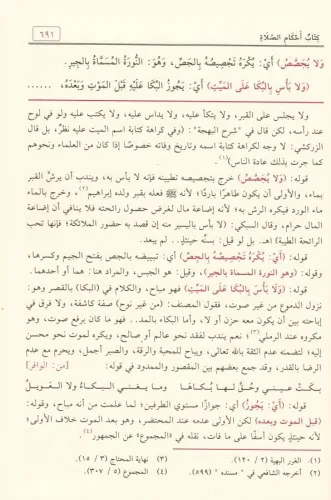 كِتَابُ أَحْكَامِ الصَّلَاةِ
٦٩١
وَلا يُجَصَّصُ) أَيْ: يُكْرَهُ تَجْصِيصُهُ بِالجَصِّ، وَهُوَ: النُّورَةُ المُسَمَّاةُ بِالجِيرِ.
(وَلا بَأْسَ بِالبُكَا عَلَى المَيِّتِ) أَيْ: يَجُوزُ البُكَا عَلَيْهِ قَبْلَ المَوْتِ وَبَعْدَهُ، ......
ولا يجلس على القبر، ولا يتكأ عليه، ولا يداس عليه، ولا يكتب عليه ولو في لوح
عند رأسه، لكن قال في "شرح البهجة": (وفي كراهة كتابة اسم الميت عليه نظرٌ، بل قال
الزركشي: لا وجه لكراهة كتابة اسمه وتاريخ وفاته خصوصًا إذا كان من العلماء ونحوهم
كما جرت بذلك عادة الناس)(١).
قوله: (وَلَا يُجَصَّصُ) خرج بتجصيصه تطيينه فإنه لا بأس به، ويندب أن يرشَّ القبر
بماء، والأولى أن يكون طاهرًا باردًا؛ لأنه ﷺ فعله بقبر ولده إبراهيم(٢)، وخرج بالماء
ماء الورد فيكره الرش به؛ لأنه إضاعة مال لغرض حصول رائحته فلا ينافي أن إضاعة
المال حرام، وقال السبكي: (لا بأس باليسير منه إن قصد به حضور الملائكة؛ فإنها تحب
الرائحة الطيبة) اهـ. بل لو قيل: بسنَّه حينئذٍ.. لم يبعد.
قوله: (أَيْ: يُكْرَهُ تَجْصِيصُهُ بِالجِصِّ) أي: تبييضه بالجص بفتح الجيم وكسرها،
وقوله: (وهو النورة المسماة بالجير)، وقيل: هو الجبس، والمراد هنا: هما أو أحدهما.
قوله: (وَلَا بَأْسَ بِالبُكَا عَلَى المَيِّتِ) فهو مباح، والكلام في (البكا) بالقصر وهو:
نزول الدموع من غير صوت، فقول المصنف: (من غير نوح) صفة كاشفة، ولا فرق في
إباحته بين أن يكون معه حزن أو لا، وأما البكاء بالمد.. فهو ما كان برفع صوت، وهو
مكروه عند الرملي(٣)؛ نعم يندب لفقد نحو عالم أو صالح، ويكره لموت نحو محسن
إليه؛ لتضمنه عدم الثقة بالله تعالى، ويباح للمحبة والرقة، والصبر أجمل، ويحرم مع عدم
الرضا بالقدر، وقد جمع بعضهم بين المقصور والممدود في قوله: [من: الوافر]
بكت عيني وحقَّ لها بُكاها وما يغني البكاءُ ولا العويلُ
قوله: (أَيْ: يَجُوزُ) أي: جوازًا مستوي الطرفين؛ لما علمت من أنه مباح، وقوله:
(قبل الموت وبعده) لكن الأولى عدمه عند المحتضر، وهو بعد الموت خلاف الأولى؛
لأنه حينئذٍ يكون أسفًا على ما فات، نقله في «المجموع» عن الجمهور(٤).
(١). الغرر البهية (٢/ ١٢٠).
(٣) نهاية المحتاج (٣/ ١٥).
(٢) أخرجه الشافعي في "مسنده" (٥٩٩).
(٤) المجموع (٥/ ٣٠٧).